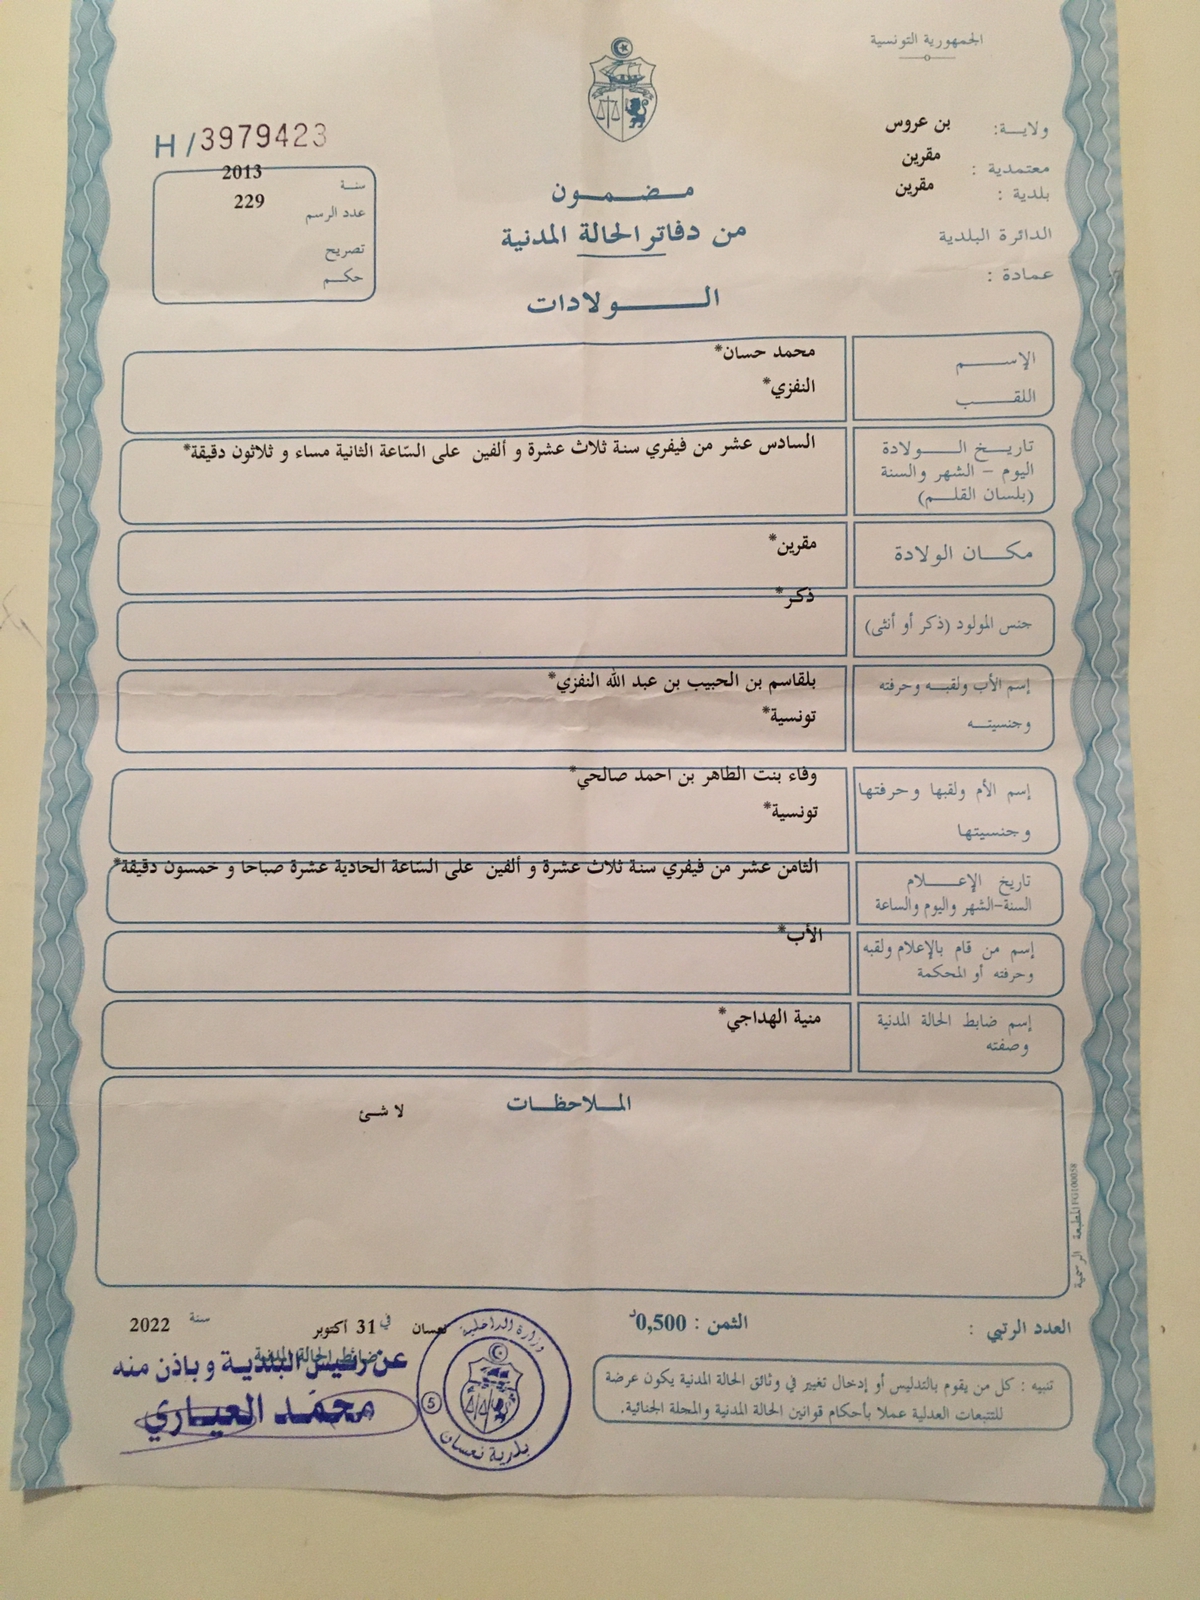 الجمهورية التونسية
ولايــة: بن عروس
معتمدية : مقرين
بلدية : مقرين
الدائرة البلدية
عمادة :
H/3979423
سنة 2013
عدد الرسم 229
تصريح
حكم
مضمون
من دفاتر الحالة المدنية
الولادات
الإسم محمد حسان*
اللقب النفزي*
تاريخ الولادة
اليوم - الشهر والسنة
(بلسان القلم)
السادس عشر من فيفري سنة ثلاث عشرة و ألفين على السّاعة الثانية مساء و ثلاثون دقيقة*
مكان الولادة مقرين*
جنس المولود (ذكر أو أنثى) ذكر*
إسم الأب ولقبه وحرفته بلقاسم بن الحبيب بن عبد الله النفزي*
وجنسيته تونسية*
إسم الأم ولقبها وحرفتها وفاء بنت الطاهر بن احمد صالحي*
وجنسيتها تونسية*
تاريخ الإعلام
السنة-الشهر واليوم والساعة
الثامن عشر من فيفري سنة ثلاث عشرة و ألفين على السّاعة الحادية عشرة صباحا و خمسون دقيقة*
إسم من قام بالإعلام ولقبه
وحرفته أو المحكمة
الأب*
إسم ضابط الحالة المدنية
وصفته
منية الهداجي*
الملاحظات
لا شئ
المطبعة الرسمية
العدد الرتبي :
الثمن : 0,500د
نعسان في 31 أكتوبر سنة 2022
ضابط الحالة المدنية
عن رئيس البلدية وباذن منه
محمّد العياري
وزارة الداخلية
5
بلدية نعسان
تنبيه : كل من يقوم بالتدليس أو إدخال تغيير في وثائق الحالة المدنية يكون عرضة
للتتبعات العدلية عملا بأحكام قوانين الحالة المدنية والمجلة الجنائية.